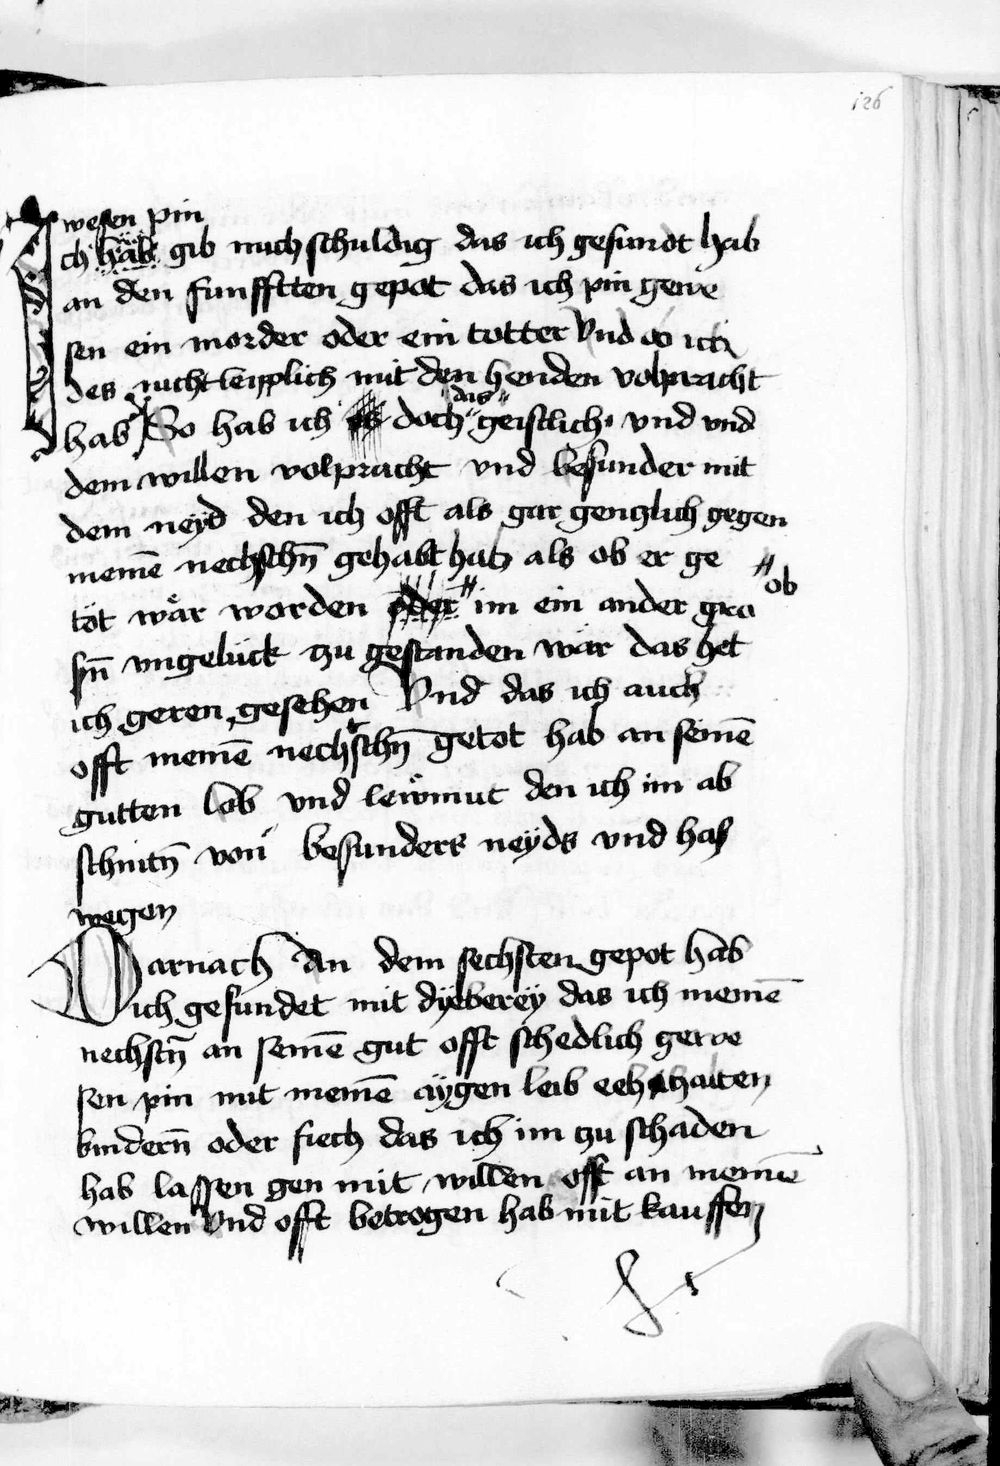 126
wesen pin
Ich hab gib mich schuldig das ich gesundt hab
an den funfftten gepot das ich pin gewe
sen ein morder oder ein totter Vnd ob ich
des nicht leipplich mit den henden volpracht
hab So hab ich es doch das geistlich vnd vnd
dem willen volpracht vnd besunder mit
dem neyd den ich offt als gar genczlich gegen
meinē nechsthn̄ gehabt hab als ob er ge
töt wär worden oder ob im ein ander gro
ssn̄ vngelück zu gestanden wär das het
ich geren gesehen Vnd das ich auch
offt meinē nechsthn̄ getot hab an seinē
gutten lob vnd lewmut den ich im ab
schnitn̄ von besunders neyds vnd hass
wegen
Darnach An dem sechsten gepot hab
ich gesundet mit dyeberey das ich meinē
nechstn̄ an seinē gut offt schedlich gewe
sen pin mit meinē aygen leib eehalten
kindern̄ oder fiech das ich im zu schaden
hab lassen gen mit willen offt an meinē
willen Vnd offt betrogen hab mit kauffen